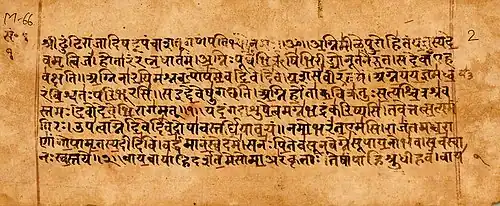 M-66
2
१
श्रीढुंढिराजादिषट्पंचाशत्गणपतिभ्योनमः॥ॐ॥अग्निमीळेपुरोहितंयज्ञस्यदे
वमृत्विजं॥होतारंरत्नधातमं॥अग्निःपूर्वेभिर्ऋषिभिरीड्योनूतनैरुत॥सदेवाँएह
वक्षति॥अग्निनारयिमश्नवत्पोषमेवदिवेदिवे॥यशसंवीरवत्तमं॥अग्नेयंयज्ञमध्व
रंविश्वतःपरिभूरसि॥सइद्देवेषुगच्छति॥अग्निर्होताकविक्रतुःसत्यश्चित्रश्रव
स्तमः॥देवोदेवेभिरागमत्॥१॥यदंगदाशुषेत्वमग्नेभद्रंकरिष्यसि॥तवेत्तत्सत्यमं
गिरः॥उपत्वाग्नेदिवेदिवेदोषावस्तर्धियावयं॥नमोभरंतएमसि॥राजंतमध्वरा
णांगोपामृतस्यदीदिविं॥वर्धमानंस्वेदमे॥सनःपितेवसूनवेग्नेसूपायनोभव॥सचस्वा
नःस्वस्तये॥२॥वायवायाहिदर्शतेमेसोमाअरंकृताः॥तेषांपाहिश्रुधीहवं॥वाय